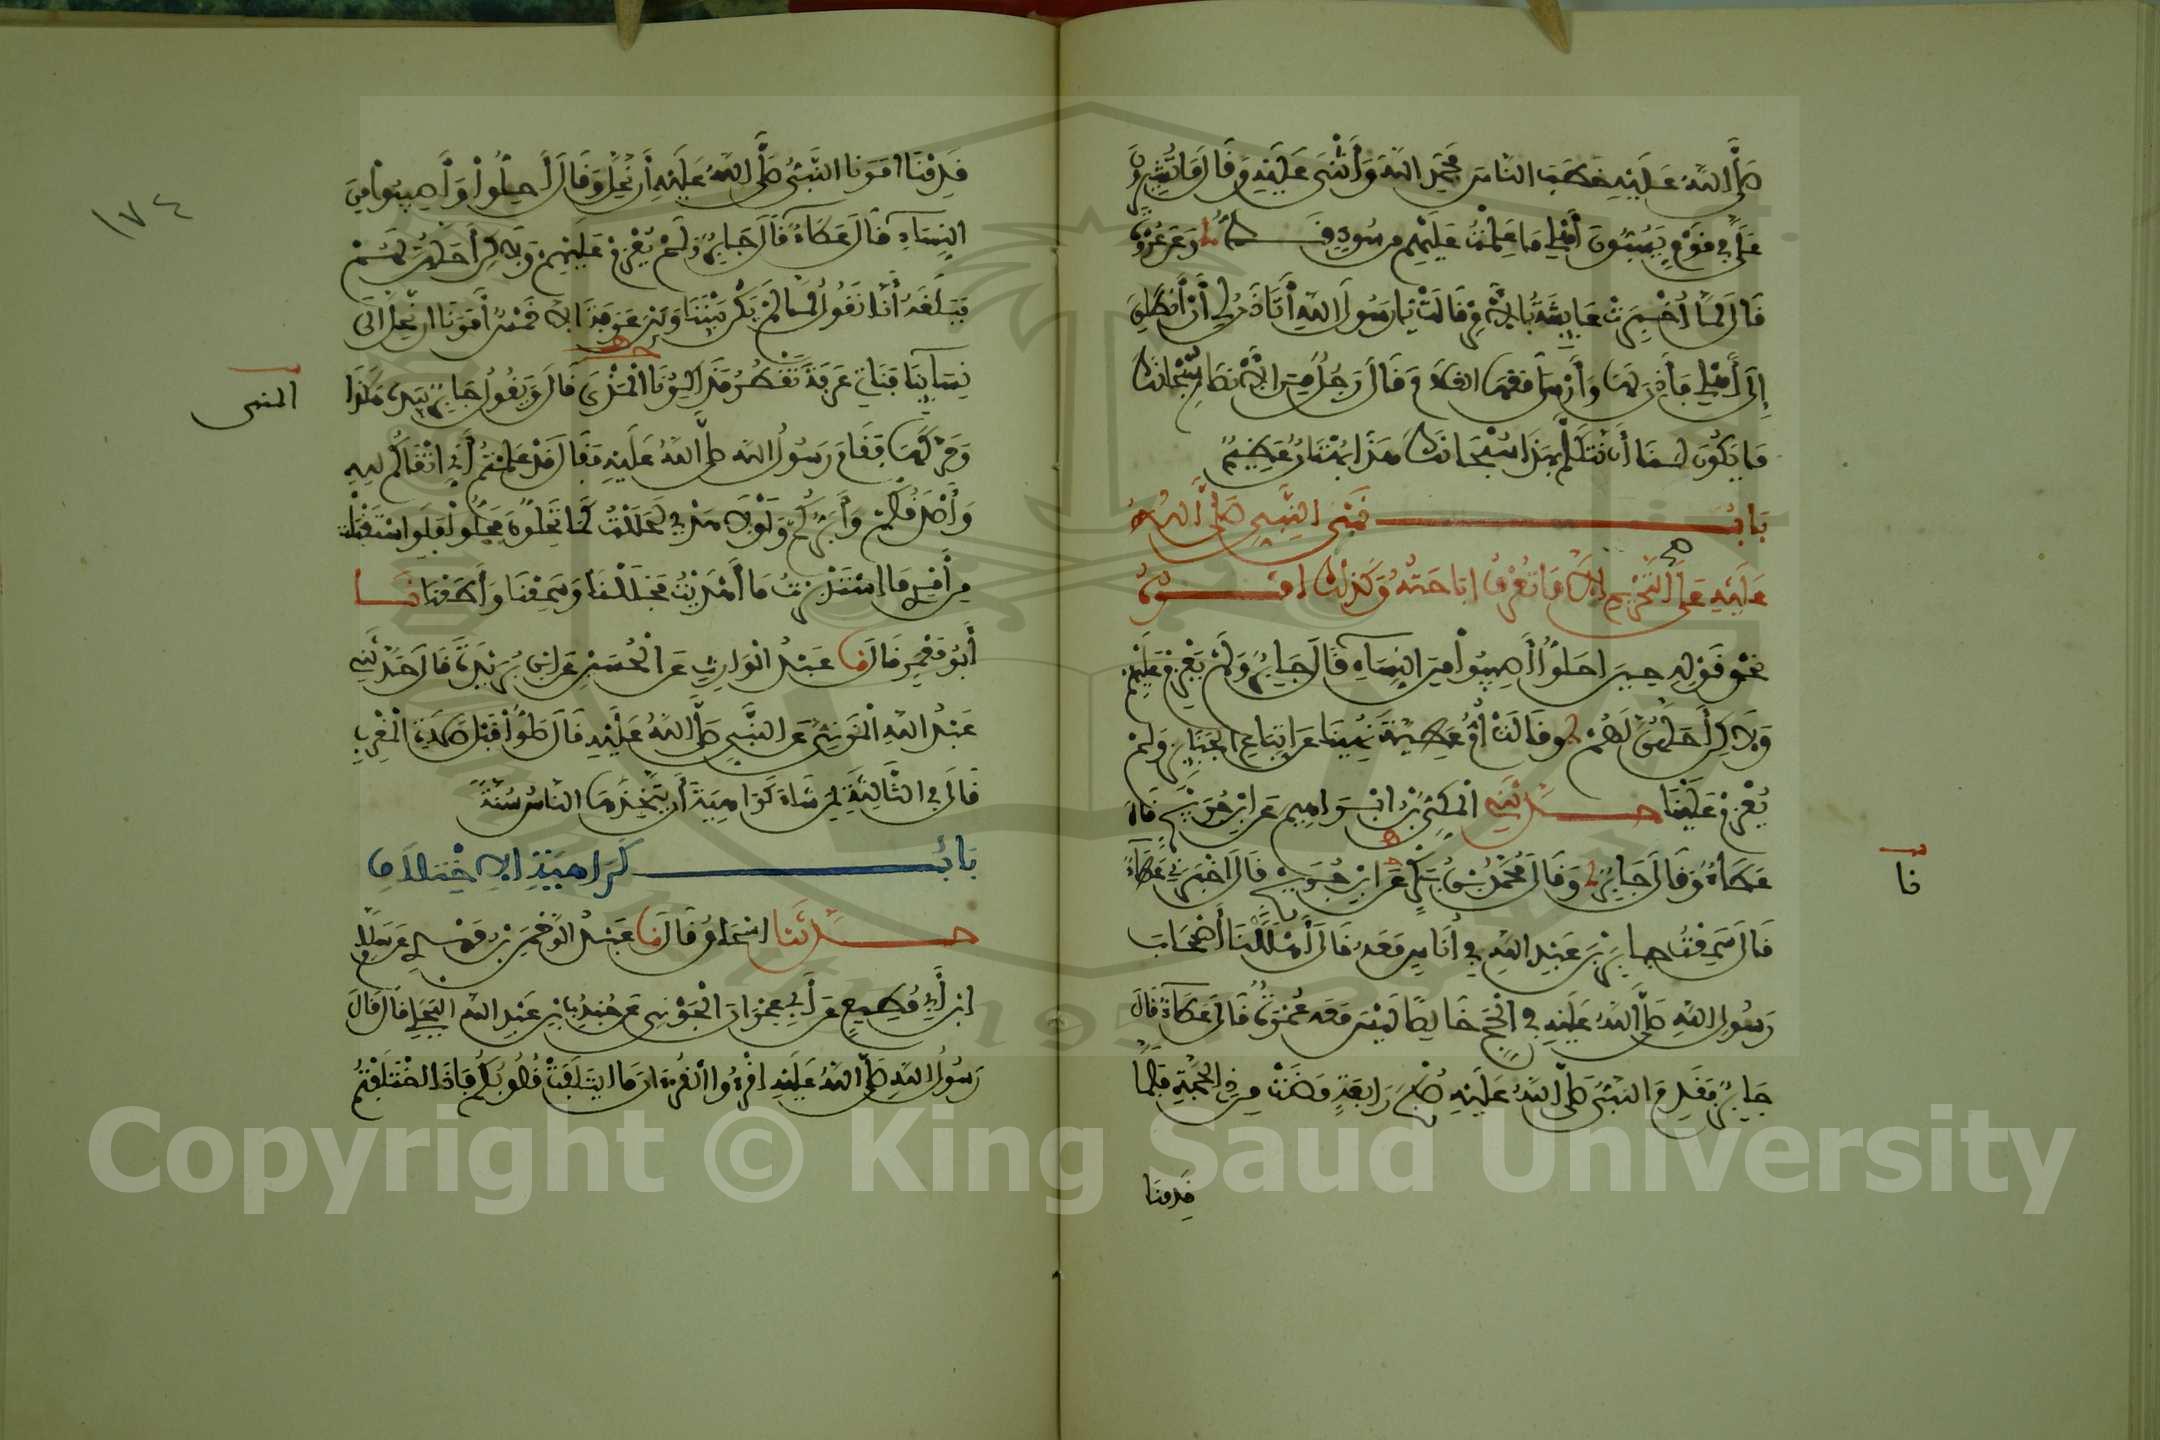 صلى الله عليه خطب الناس فحمد الله وأثنى عليه وقال ما تشيرون
علي في قوم يسبون أهلي ما علمت عليهم من سوء قط وعن عروة
قال لما أخبرت عايشة بالأمر قالت يا رسول الله أتاذن لي أن أنطلق
إلى أهلي فأذن لها وأرسل معها الغلام وقال رجل من الانصار سبحانك
ما يكون لنا أن نتكلم بهذا سبحانك هذا بهتان عظيم
باب نهي النبي صلى الله
عليه على التحريم إلا ما تعرف اباحته وكذلك امره
نحو قوله حين احلوا أصيبوا من النساء قال جابر ولم يعزم عليهم
ولاكن أحلهن لهم وقالت أم عطية نهينا عن اتباع الجنايز ولم
يعزم علينا حدثني المكي بن ابرهيم عن ابن جريج قال
عطاء وقال جابر وقال محمد بن بكر عن ابن جريج قال اخبرني عطاء
قال سمعت جابر بن عبد الله في أناس معه قال أهللنا أصحاب
رسول الله صلى الله عليه في الحج خالصا ليس معه عمرة قال عطاء قال
جابر فقدم النبي صلى الله عليه صبح رابعة مضت من ذي الحجة فلما
قدمنا
نا
١٧٤
قدمنا امرنا النبي صلى الله عليه أن نحل وقال أحلوا وأصيبوا من
النساء قال عطاء قال جابر ولم يعزم عليهم ولاكن أحلهن لهم
فبلغه أنا نقول لما لم يكن بيننا وبين عرفة الا خمس أمرنا ان نحل الى
نساينا فناتي عرفة تقطر مذاكيرنا المذي قال ويقول جابر بيده هكذا
المني
وحركها فقام رسول الله صلى الله عليه فقال قد علمتم أني اتقاكم لله
وأصدقكم وأبركم ولولا هديي لحللت كما تحلون فحلوا فلو استقبلت
من أمري ما استدبرت ما أهديت فحللنا وسمعنا وأطعنا نا
أبو معمر قال نا عبد الوارث عن الحسين عن ابن بريدة قال حدثني
عبد الله المزني عن النبي صلى الله عليه قال صلوا قبل صلاة المغرب
قال في الثالثة لمن شاء كراهية أن يتخذها الناس سنة
باب كراهية الاختلاف
حدثنا اسحاق قال نا عبد الرحمن بن مهدي عن سلام
ابن أبي مطيع عن أبي عمران الجوني عن جندب بن عبد الله البجلي قال قال
رسول الله صلى الله عليه اقرءوا القرءان ما ايتلفت قلوبكم فاذا اختلفتم
Copyright © King Saud University